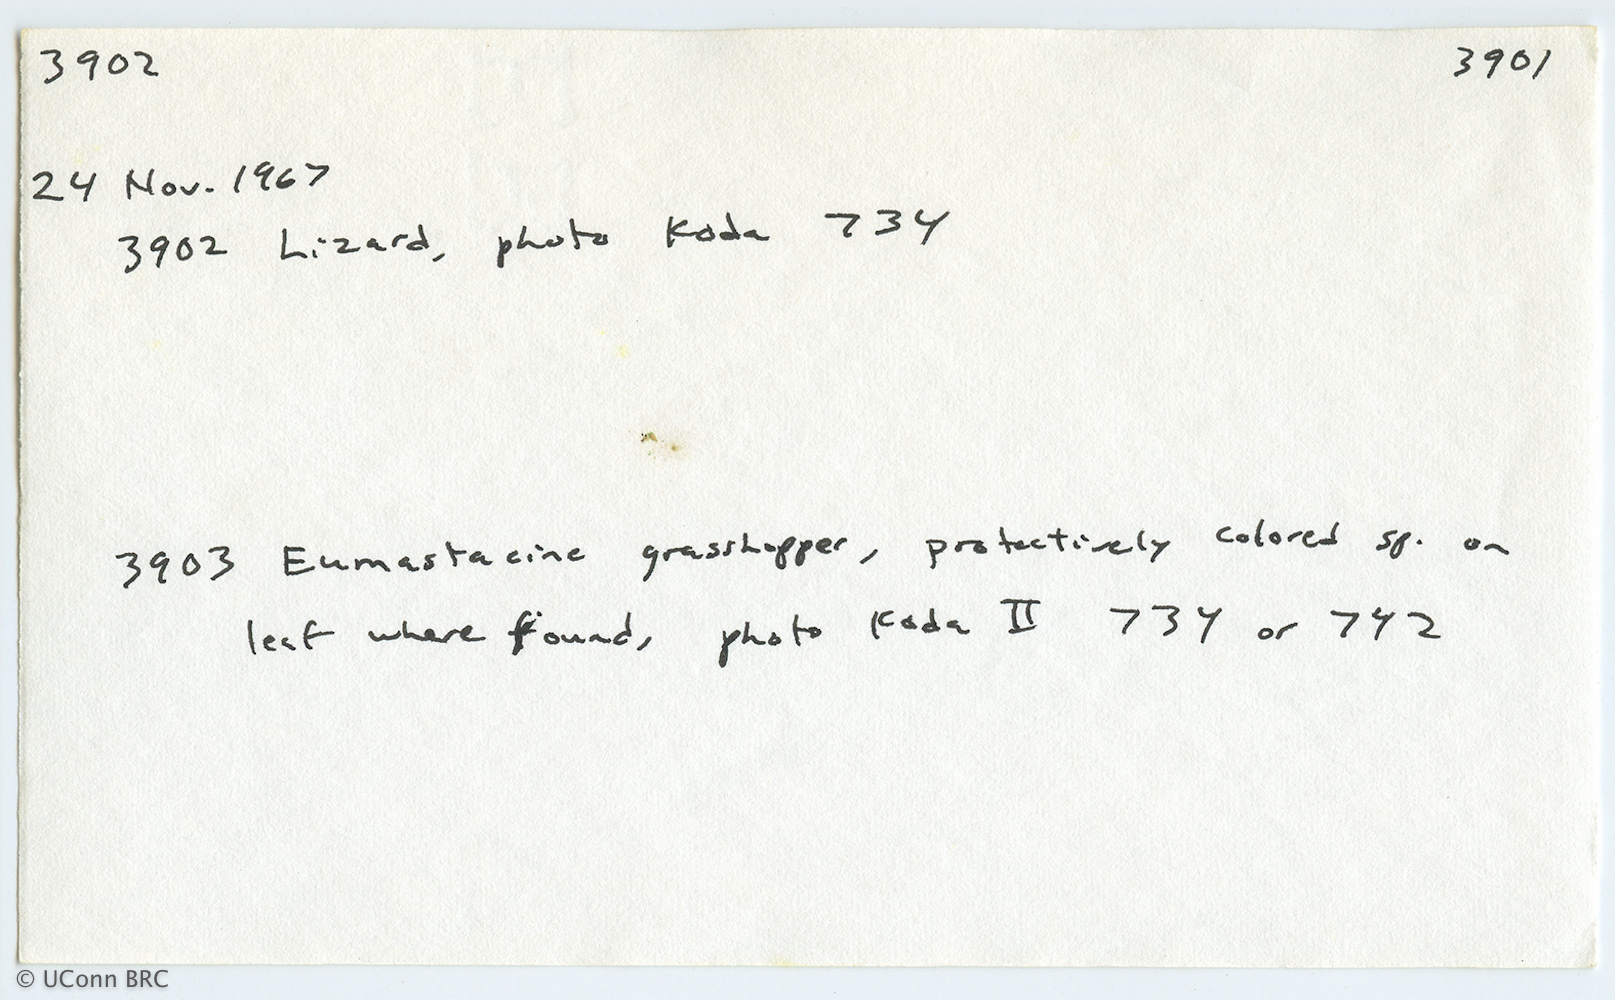 3902 3901
24 Nov. 1967
3902 Lizard, photo Koda 734
3903 Eumastacine grasshopper, protectively colored sp. on
leaf where found, photo Koda II 734 or 742
© UConn BRC